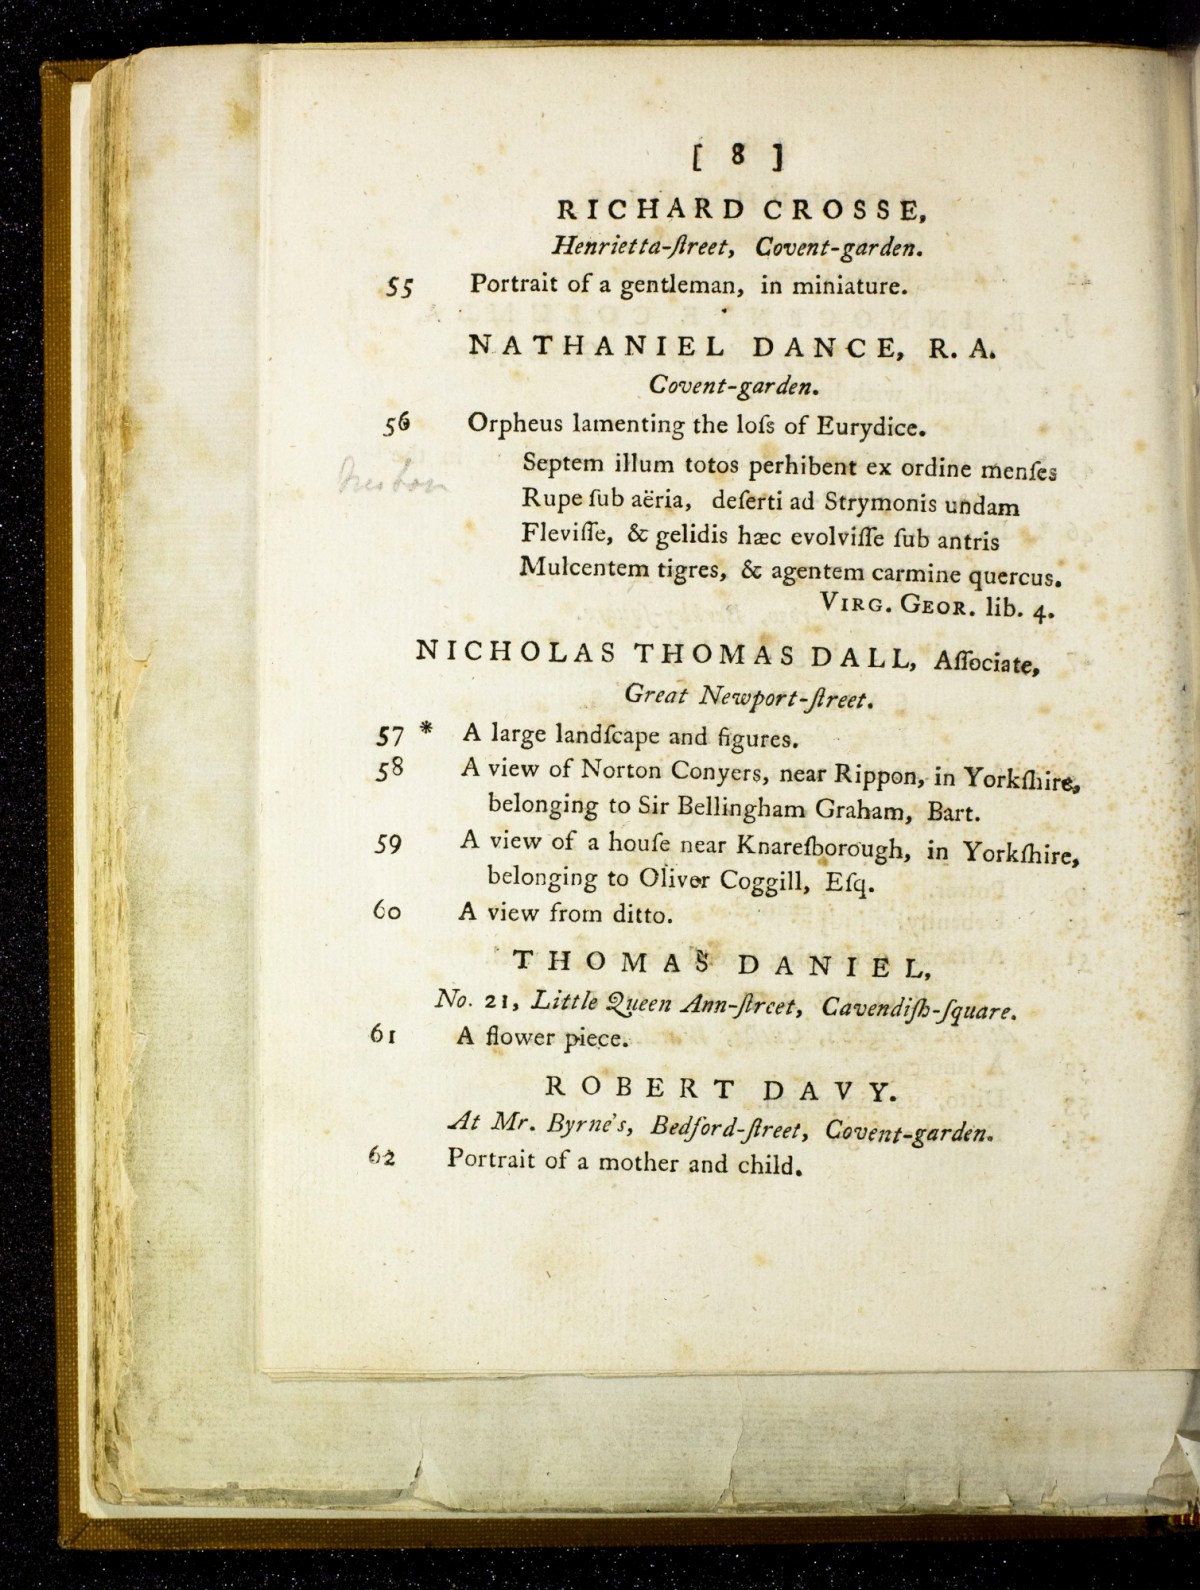 [ 8 ]
RICHARD CROSSE,
Henrietta-ſtreet, Covent-garden.
55 Portrait of a gentleman, in miniature.
NATHANIEL DANCE, R. A.
Covent-garden.
56 Orpheus lamenting the loſs of Eurydice.
Septem illum totos perhibent ex ordine menſes
Rupe ſub aëria, deſerti ad Strymonis undam
Fleviſſe, & gelidis hæc evolviſſe ſub antris
Mulcentem tigres, & agentem carmine quercus.
VIRG. GEOR. lib. 4.
NICHOLAS THOMAS DALL, Aſſociate,
Great Newport-ſtreet.
57 * A large landſcape and figures.
58 A view of Norton Conyers, near Rippon, in Yorkſhire,
belonging to Sir Bellingham Graham, Bart.
59 A view of a houſe near Knareſborough, in Yorkſhire,
belonging to Oliver Coggill, Eſq.
60 A view from ditto.
THOMAS DANIEL,
No. 21, Little Queen Ann-ſtreet, Cavendiſh-ſquare.
61 A flower piece.
ROBERT DAVY.
At Mr. Byrne's, Bedford-ſtreet, Covent-garden.
62 Portrait of a mother and child.